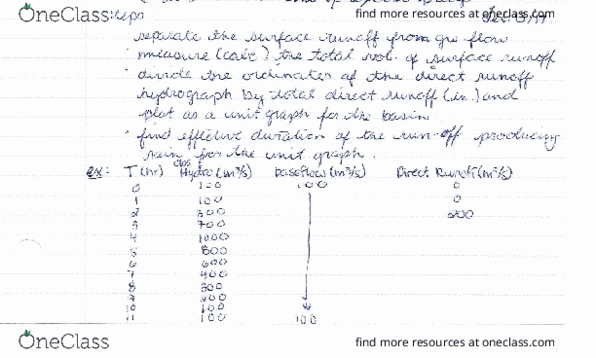 OneClass find more resources at oneclass.com
steps
separate the surface runoff from gw flow
measure (calc) the total vol. of surface runoff
divide the ordinates of the direct runoff
hydrograph by total direct runoff (in.) and
plot as a unit graph for the basin
find effective duration of the run-off producing
rain for the unit graph.
obs
ex: T (hr) Hydro (m³/s) baseflow (m³/s) Direct Runoff (m³/s)
0 100 100 0
1 100 0
2 300 200
3 700
4 1000
5 800
6 600
7 400
8 300
9
10 100
11 100 100
OneClass find more resources at oneclass.com